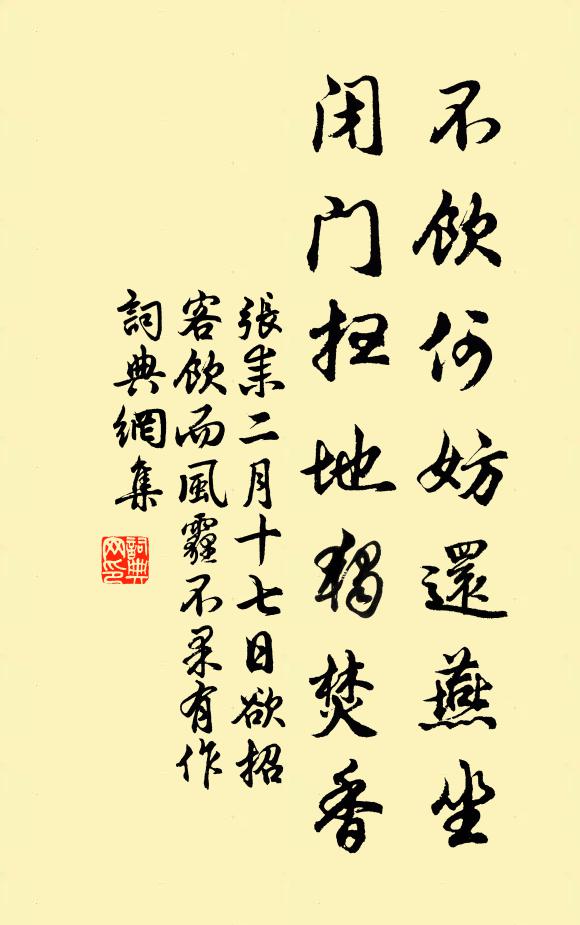 不飲何妨還燕坐
閉門掃地獨焚香
張耒二月十七日欲招
客飲而風霾不果有作
詞典網集
詞典
网印